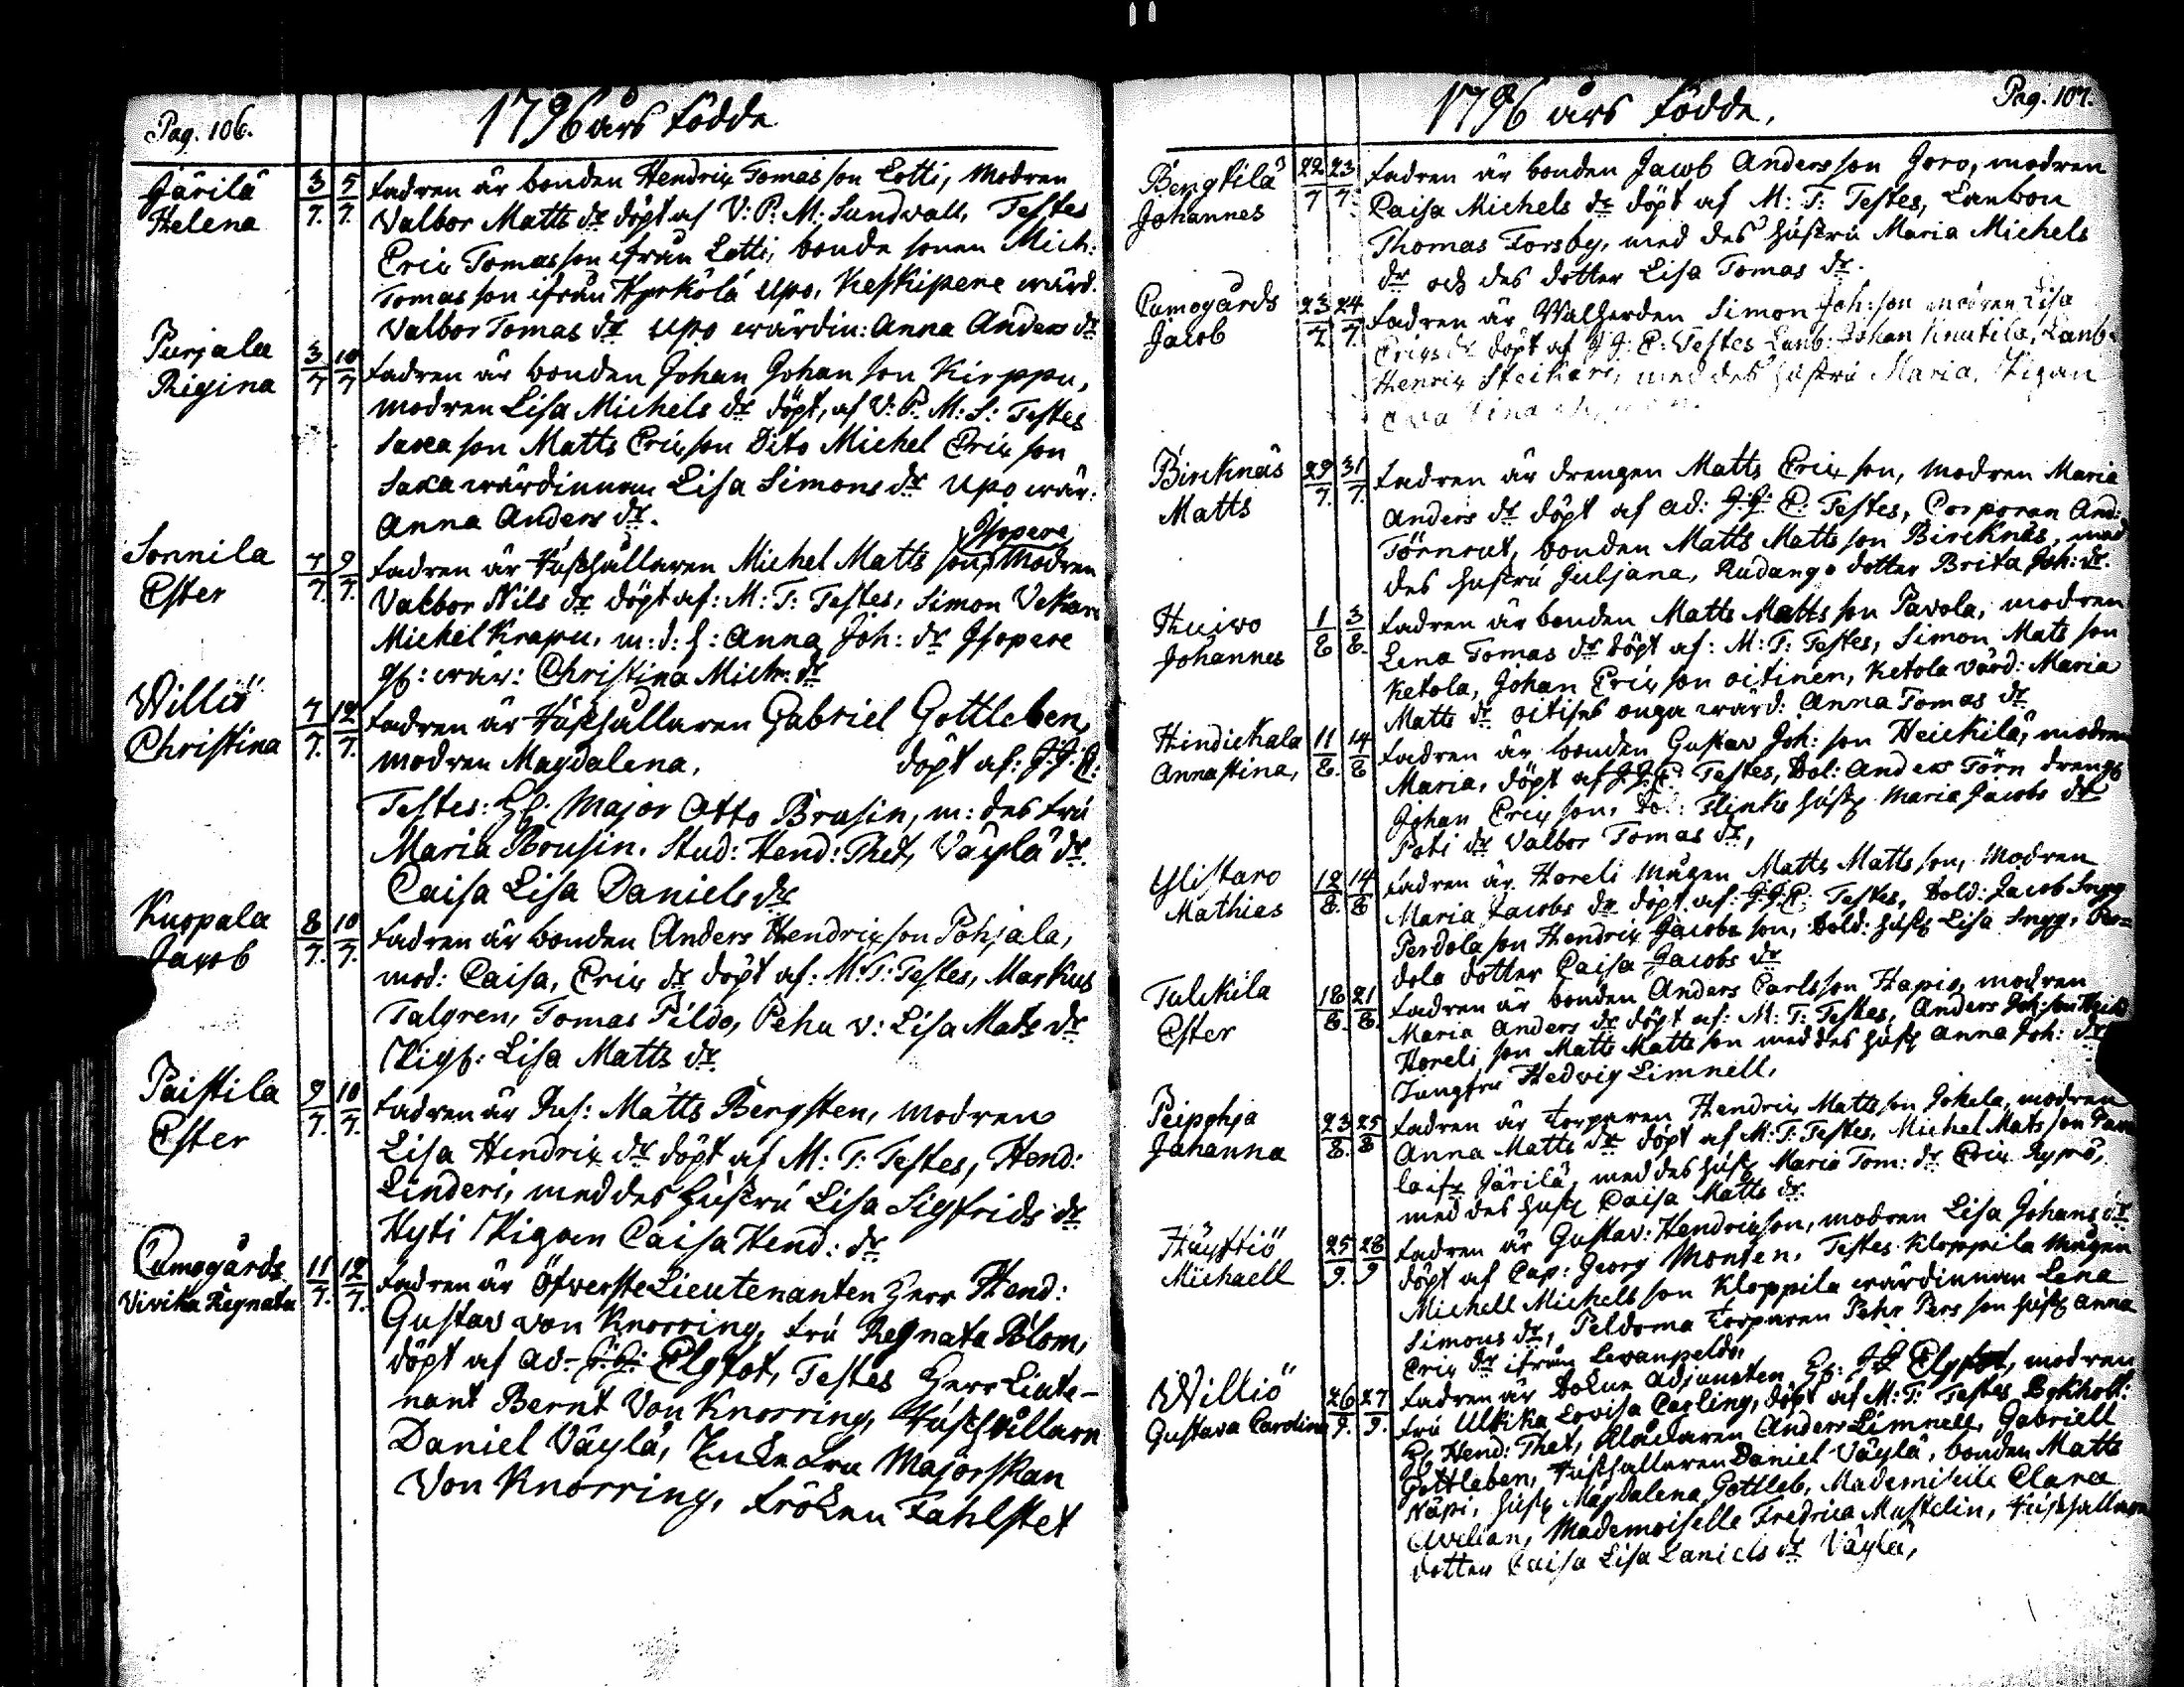 Pag. 106.
1796 års födde
Järilä 3/7. 5/7. Fadren är bonden Hendrix Tomas son Lotti, Modren
Helena Valbor Matts dr döpt af V: P: M: Sundvall, Testes
Eric Tomas son ifrån Lotti, bonde sonen Mich:
Tomas son ifrån Hyrkölä Upo, Keskipere wärd.
Valbor Tomas dr Upo wärdin: Anna Anders dr
Purjala 3/7 10/7 Fadren är bonden Johan Johan son Kirppu,
Rigina modren Lisa Michels dr döpt, af V: P. M: S: Testes
Saxa son Matts Erix son Dito Michel Erix son
Saxa wärdinnan Lisa Simons dr Upo wär:
Anna Anders dr.
Isopere
Sonnila 7/7. 9/7. Fadren är Hushållaren Michel Matts son, Modren
Ester Valbor Nils dr döpt af: M: T: Testes, Simon Vekara
Michel Krapu, m: d: h: Anna Joh: dr Isopere
gb: wär: Christina Mich: dr
Williö 7/7. 12/7. Fadren är Hushållaren Gabriel Gottleben,
Christina modren Magdalena, döpt af: J. J. E:
Testes: Hr: Major Otto Brusin, m: des fru
Maria Brusin. Stud: Hend: Thet, Väylä dr.
Caisa Lisa Daniels dr
Kuopala 8/7. 10/7. Fadren är bonden Anders Hendrix son Pohjala,
Jacob mod: Caisa, Erix dr döpt af: M: T: Testes, Markus
Talgren, Tomas Pildo, Pehu v: Lisa Mats dr
Pigb: Lisa Matts dr
Paistila 9/7. 10/7. Fadren är Rus: Matts Bergsten, modren
Ester Lisa Hendrix dr döpt af M: T: Testes, Hend:
Linderi, med des hustru Lisa Sigfrids dr
Hyti Pigan Caisa Hend: dr
Cumogårds 11/7. 12/7. Fadren är Öfverste Lieutenanten Herr Hend:
Vivika Regnata Gustav von Knorring, fru Regnata Blom,
döpt af ad- J: J: Elgfot, Testes Herr Liute-
nant Bernt Von Knorring, Hushållarn
Daniel Väylä, Enke fru Majorskan
Von Knorring, fröken Fahlstet
1796 års födde,
Pag. 107.
Bengtilä 22/7 23/7. Fadren är bonden Jacob Anders son Joro, modren
Johannes Caisa Michels dr döpt af M: T: Testes, Lanbon
Thomas Forsby, med des hustru Maria Michels
dr och des dotter Lisa Tomas dr.
Cumogårds 23/7. 24/7. Fadren är Walherden Simon Joh: son modren Lisa
Jacob Erix dr döpt af J J: E: Testes Lanb: Johan Knutila, Lanb:
Henrix Steikari, med des hustru Maria, Pigan
Birknäs 29/7. 31/7. Fadren är drengen Matts Erix son, modren Maria
Matts Anders dr döpt af ad: J: J: E: Testes, Corporan And:
Törnrut, bonden Matts Matts son Bircknäs, med
des hustru Juljana, Rudango dotter Brita Joh: dr.
Huiwo 1/8 3/8. Fadren är bonden Matts Matts son Pavola, modren
Johannes Lena Tomas dr döpt af: M: T: Testes, Simon Mats son
Ketola, Johan Erix son oitinen, Ketola värd: Maria
Matts dr oitises onga wärd: Anna Tomas dr
Hindickala 11/8. 14/8 Fadren är bonden Gustav Joh: son Heickilä, modren
Annastina, Maria, döpt af J. J. E. Testes, Dol: Anders Törn drengs
Johan Erix son, Dol: Flinks hust Maria Jacobs dr
Pati dr Valbor Tomas dr,
Ylistaro 12/8. 14/8 Fadren är Horeli mågen Matts Matts son, Modren
Mathias Maria Jacobs dr döpt af: J. J. E: Testes, Dold: Jacob Snygg
Perdola son Hendrix Jacobs son, Dold: hust Lisa Snyg, Per=
dola dotter Caisa Jacobs dr
Tulckila 18/8. 21/8. Fadren är bonden Anders Carlsson Hapio, modren
Ester Maria Anders dr döpt af: M: T: Testes, Anders Joh: son Heik
Horeli son Matts Matts son med des hust Anna Joh: dr
Jungfru Hedvig Limnell.
Peipohja 23/8. 25/8 Fadren är torparen Hendrix Matts son Jokela, modren
Johanna Anna Matts dr döpt af M: T: Testes, Michel Mats son
Järilä, med des hust Maria Tom: dr Erix Rypö,
med des hust Caisa Matts dr
Häyttiö 25/9. 28/9 Fadren är Gustav: Hendrixson, modren Lisa Johans dr
Michaell döpt af Cap: Georg Monsen, Testes Kloppila mågen
Michell Michels son Kloppila wärdinnan Lena
Simons dr, Peldoma torparen Pehr Pers son hust Anna
Erix dr ifrån Levanpeldo,
Williö 26/9. 27/9. Fadren är Dokne Adjuncten Hr: J J Elgfot, modren
Gustava Carolina fru Ulrika Lovisa Carling, döpt af M: T: Testes, Bokholl:
Hr Hend: Thet, Klåckaren Anders Limnell, Gabriell
Gottleben, Hushållaren Daniel Väylä, bonden Matts
Näpi, hust Magdalena Gottleb, Mademoiselle Clara
Avellan, Mademoiselle Fredrica Mustelin, Hushållaren
dotter Caisa Lisa Daniels dr Väylä,